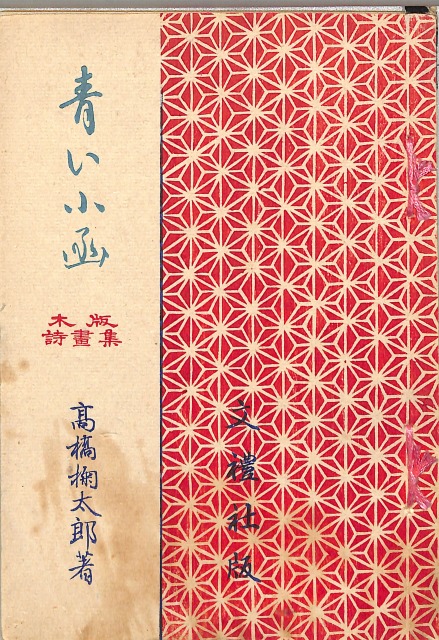 青い小函
木版
詩畫集
高橋掬太郎著
文禮社版